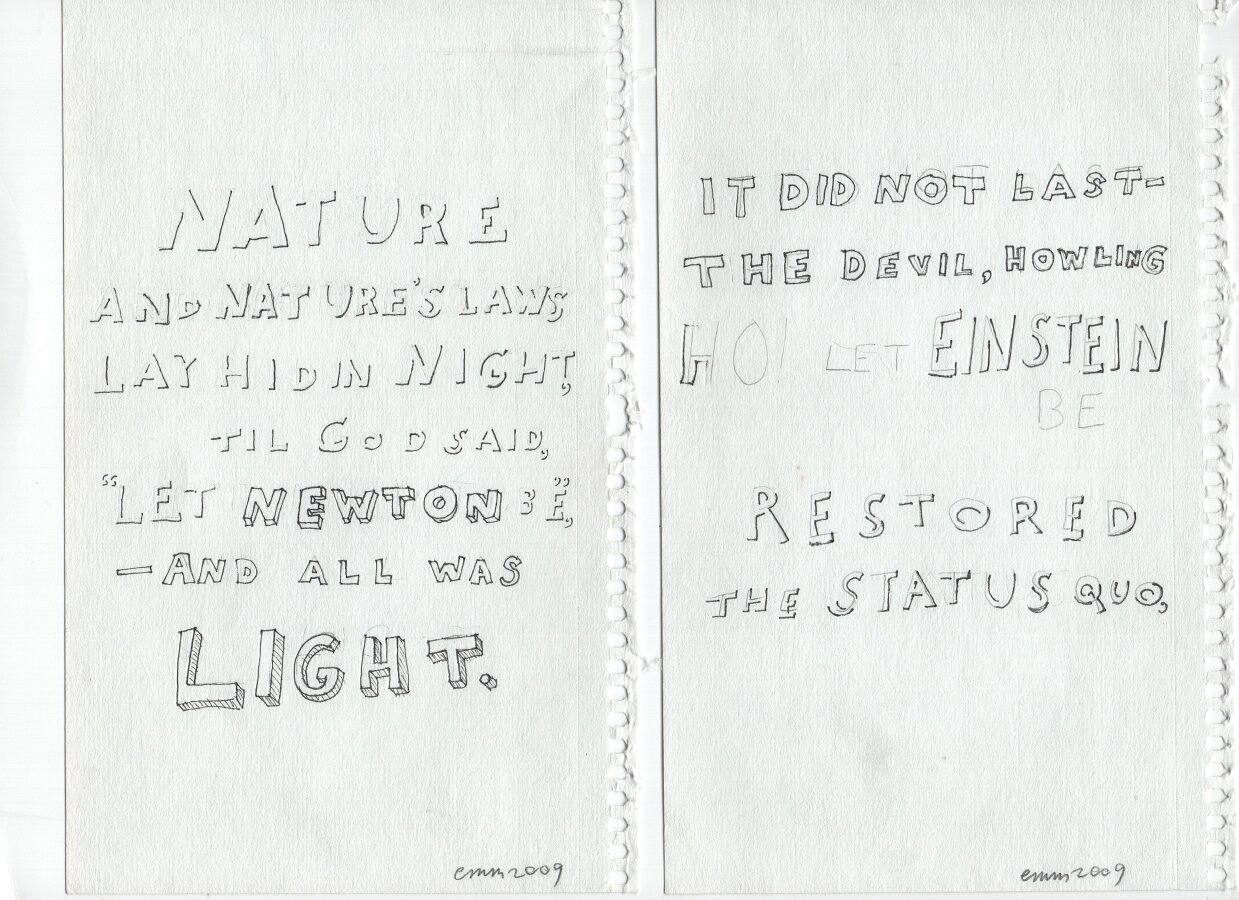 NATURE
AND NATURE'S LAWS
LAY HID IN NIGHT,
TIL GOD SAID,
"LET NEWTON BE",
—AND ALL WAS
LIGHT.
emm2009
IT DID NOT LAST—
THE DEVIL, HOWLING
HO! LET EINSTEIN
BE
RESTORED
THE STATUS QUO,
emm2009